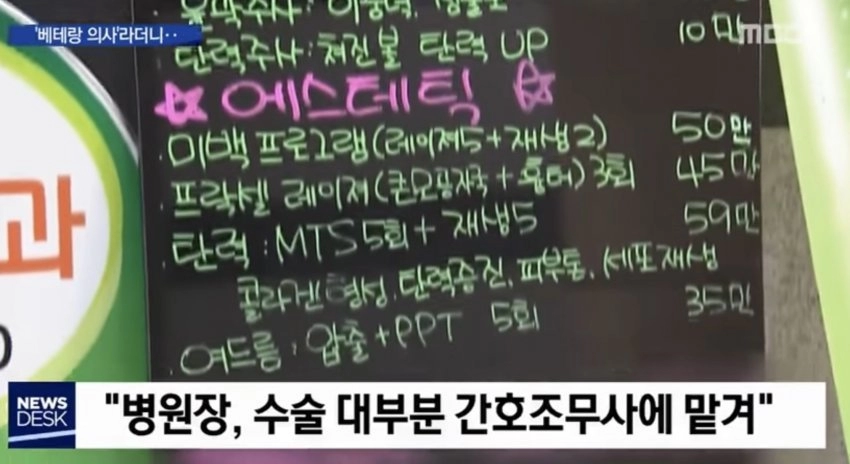 '베테랑 의사'라더니‥
MBC
10만
탄력주사: 처진볼 탄력 UP
☆에스테틱☆
미백 프로그램(레이저5+재생2) 50만
프락셀 레이저(큰모공자국+흉터)3회 45만
탄력: MTS 5회+재생5 59만
콜라겐형성, 탄력증진, 피부톤, 세포재생
여드름: 압출+PPT 5회 35만
과
NEWS DESK
"병원장, 수술 대부분 간호조무사에 맡겨"